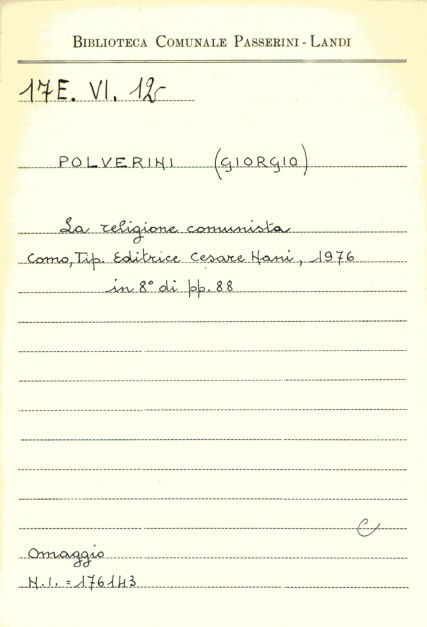 BIBLIOTECA COMUNALE PASSERINI - LANDI
17E. VI. 12
POLVERINI (GIORGIO)
La religione comunista
Como, Tip. Editrice Cesare Nani, 1976
in 8° di pp. 88
C
Omaggio
N.I. = 176143